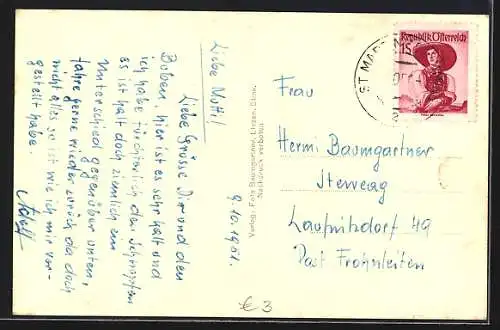 Liebe Mutti!
Liebe Grüsse Dir und den
Buben, hier ist es sehr kalt und
ich habe fürchterlich den Schnupfen
es ist halt doch ziemlich ein
Unterschied gegenüber unten,
fahre gerne wieder zurück da doch
nicht alles so ist wie ich mir vor-
gestellt habe.
9.10.1951.
Nachdruck verboten
Republik Österreich
ST MA
Frau
Hermi Baumgartner
Laufnitzdorf 49
Post Frohnleiten
€ 3